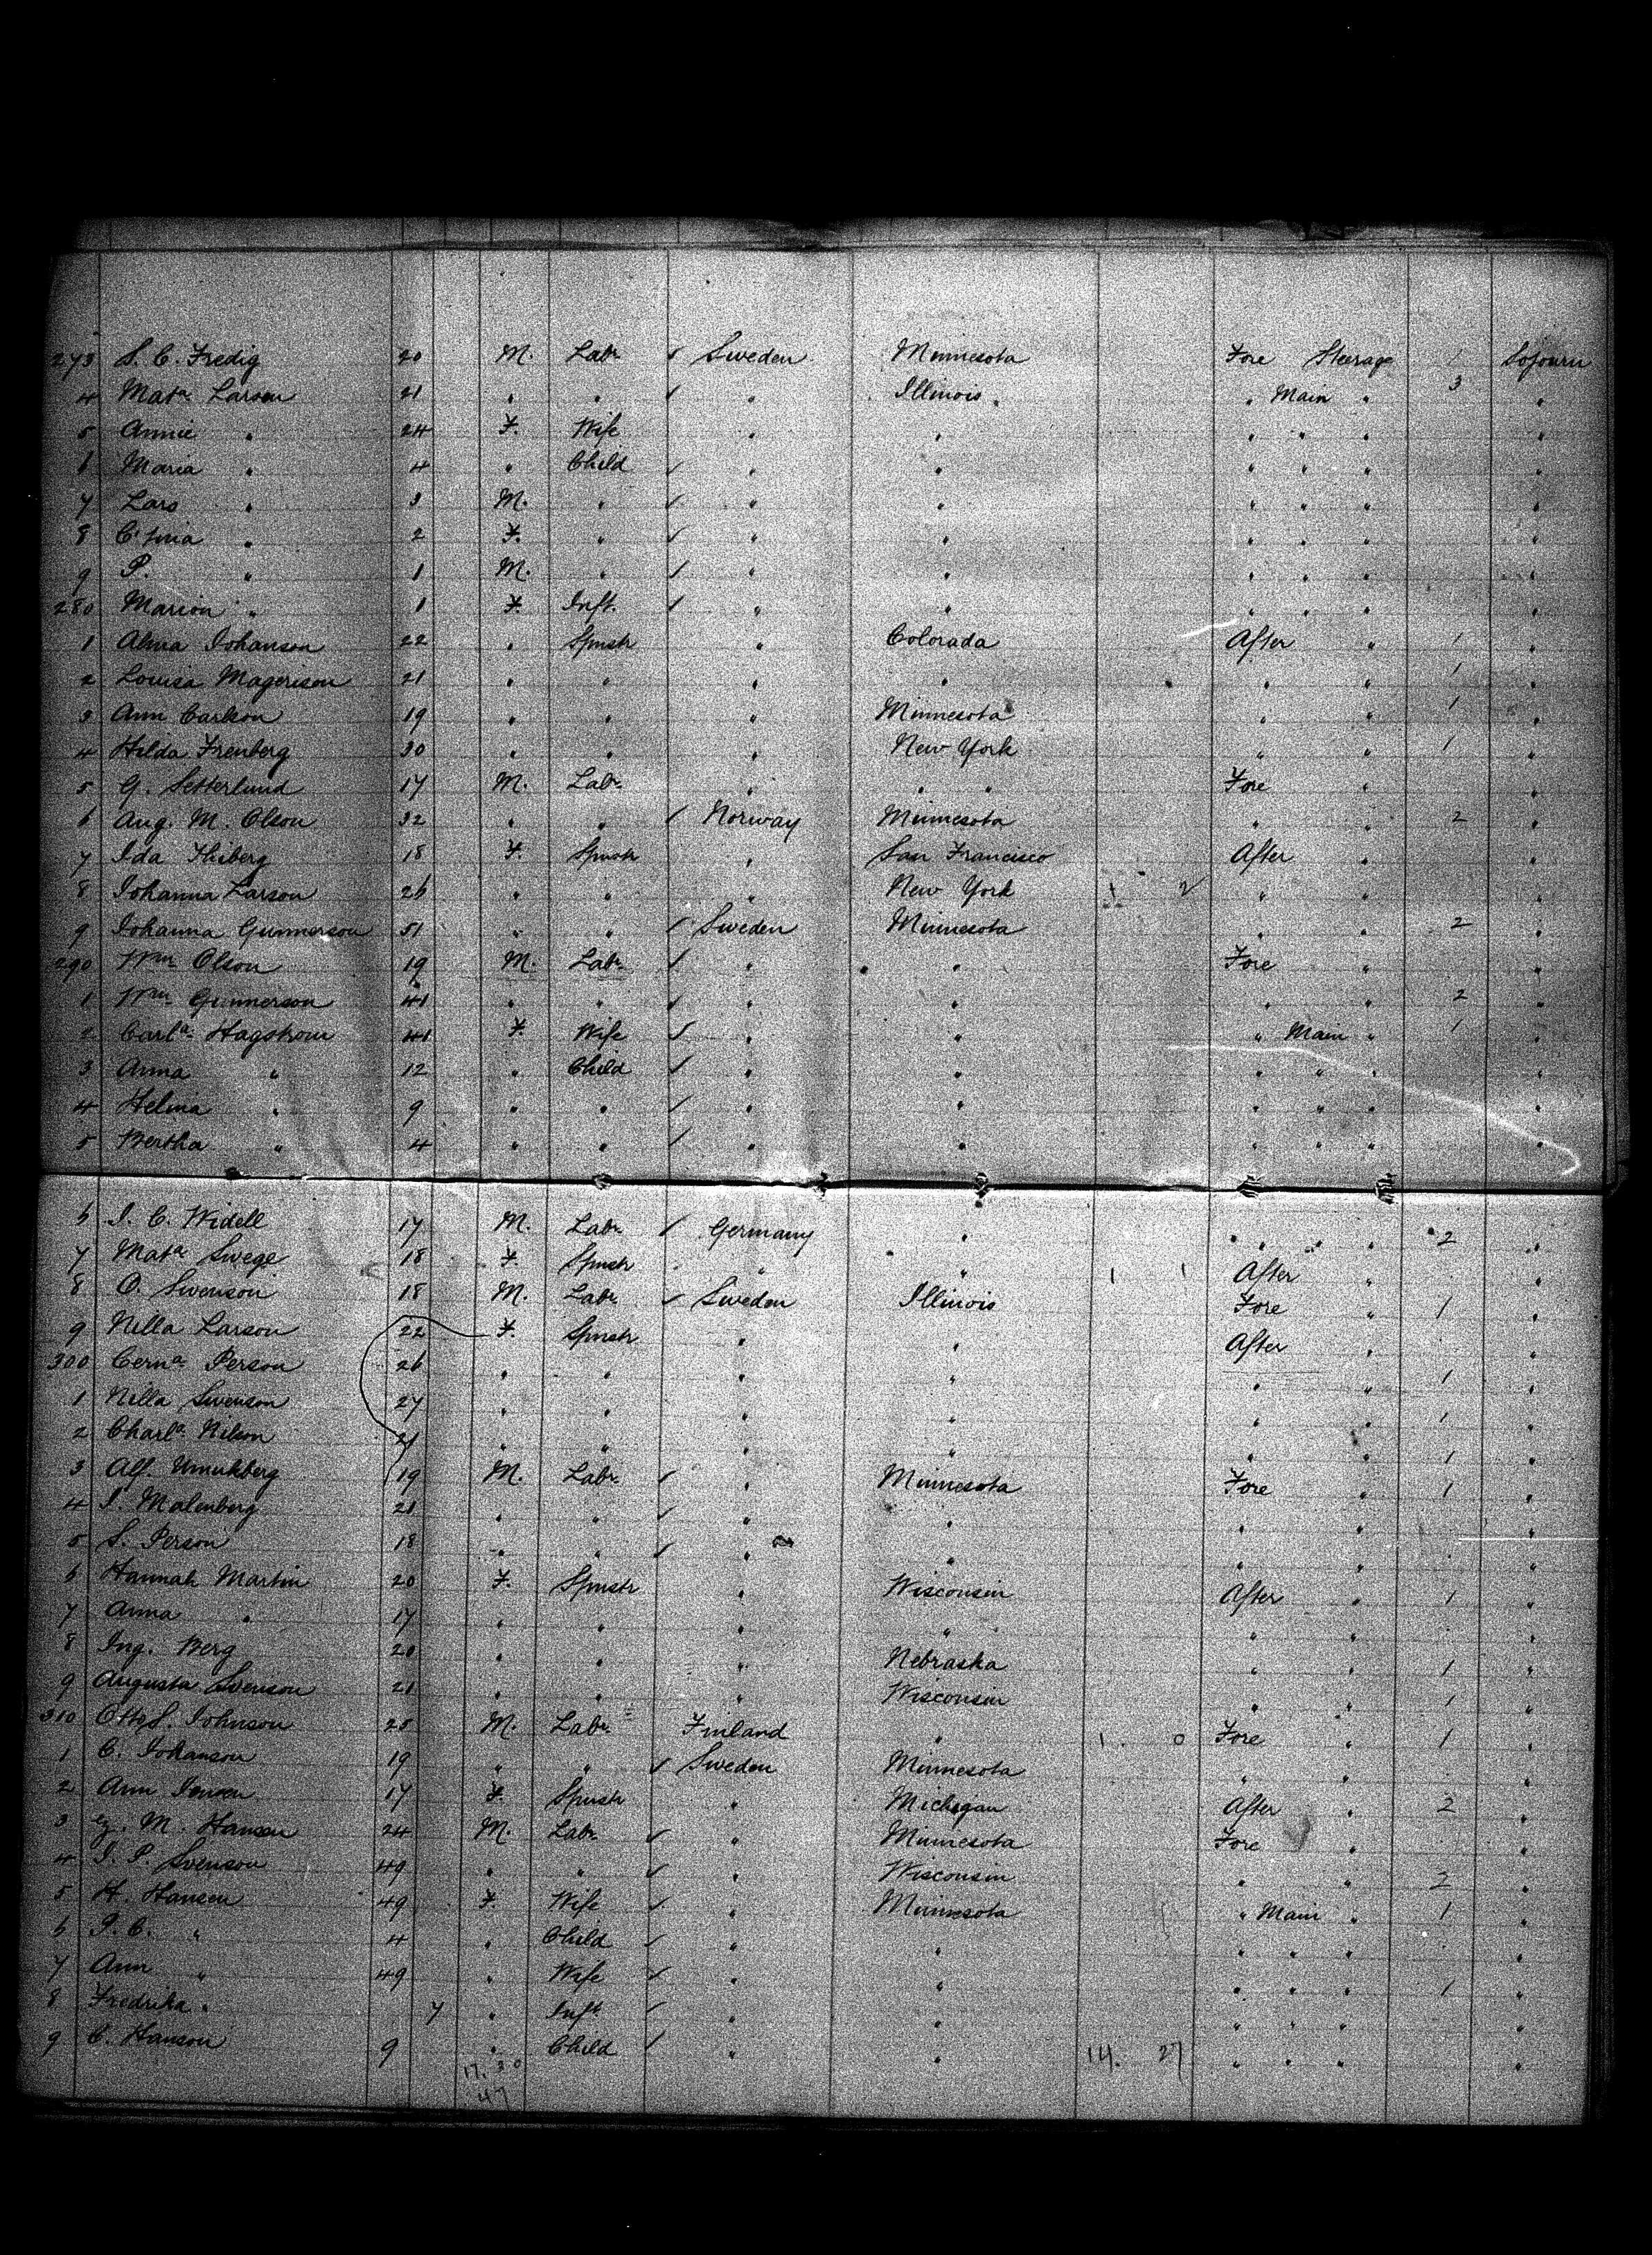 273 S. C. Fredig 20 M. Labr ✓ Sweden Minnesota Fore Steerage Sojourn
4 Mata Larson 21 " " ✓ " Illinois " Main " 3 "
5 Annie " 24 F. Wife " " " " " "
6 Maria " 4 " Child ✓ " " " " " "
7 Lars " 3 M. " ✓ " " " " " "
8 C. " 2 F. " ✓ " " " " " "
9 P. " 1 M. " ✓ " " " " " "
280 Marion " 1 F. Inft. ✓ " " " " " "
1 Alma Johanson 22 " Spnstr " Colorada After " 1 "
2 Louisa Magerison 21 " " " " " " 1 "
3 Ann Carlson 19 " " " Minnesota " " 1 "
4 Hilda Frenberg 30 " " " New York " " 1 "
5 G. Setterlund 17 M. Labr " " " Fore " "
6 Aug. M. Olson 32 " " ✓ Norway Minnesota " " 2 "
7 Ida Thiberg 18 F. Spnstr " San Francisco After " "
8 Johanna Larson 26 " " " New York 1 2 " " "
9 Johanna Gunnerson 51 " " ✓ Sweden Minnesota " " 2 "
290 Wm Olson 19 M. Labr ✓ " " Fore " "
1 Wm Gunnerson 41 " " ✓ " " " " 2 "
2 Carla Hagstrom 41 F. Wife ✓ " " " Main " 1 "
3 Anna " 12 " Child ✓ " " " " " "
4 Helma " 9 " " ✓ " " " " " "
5 Bertha " 4 " " ✓ " " " " " "
6 I. C. Widell 17 M. Labr ✓ Germany " " " " 2 "
7 Mata Swege 18 F. Spnstr " " 1 1 After " "
8 O. Swenson 18 M. Labr ✓ Sweden Illinois Fore " 1 "
9 Nilla Larson 22 F. Spnstr " " After " "
300 Cerna Person 26 " " " " " " 1 "
1 Nilla Swenson 27 " " " " " " 1 "
2 Charla Nilson 21 " " " " " " 1 "
3 Alf. 19 M. Labr ✓ " Minnesota Fore " 1 "
4 I. Malenberg 21 " " ✓ " " " " "
5 S. Person 18 " " ✓ " " " " "
6 Hannah Martin 20 F. Spnstr " Wisconsin After " 1 "
7 Anna " 17 " " " " " " "
8 Ing. Berg 20 " " " Nebraska " " 1 "
9 Augusta Svenson 21 " " " Wisconsin " " 1 "
310 Otto S. Johnson 25 M. Labr Finland " 1. 0 Fore " 1 "
1 C. Johanson 19 " " ✓ Sweden Minnesota " " "
2 Ann Jensen 17 F. Spnstr " Michigan After " 2 "
3 M. Hansen 24 M. Labr ✓ " Minnesota Fore " "
4 I. P. Svenson 49 " " ✓ " Wisconsin " " 2 "
5 H. Hansen 49 F. Wife ✓ " Minnesota " Main " 1 "
6 P. C. " 4 " Child ✓ " " " " " "
7 Ann " 49 " Wife ✓ " " " " " 1 "
8 Fredrika " 7 " Inft ✓ " " " " " "
9 C. Hanson 9 " Child ✓ " " 14. 27 " " " "
17. 30
47